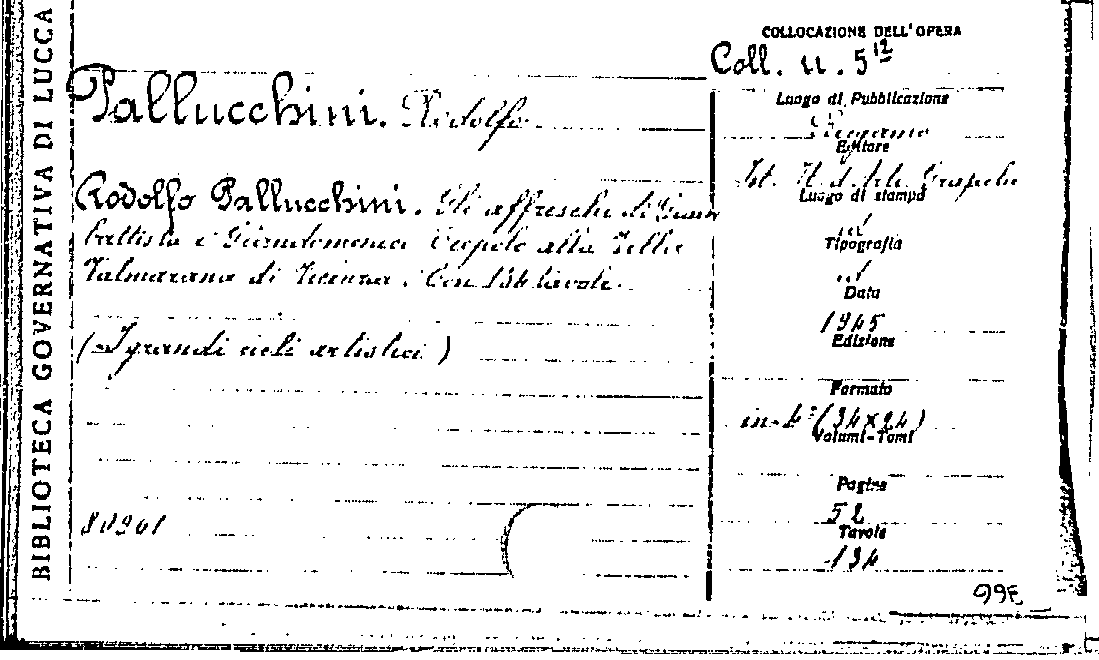 BIBLIOTECA GOVERNATIVA DI LUCCA
COLLOCAZIONE DELL'OPERA
Coll. n. 5 12
Pallucchini. Rodolfo
Luogo di Pubblicazione
Bergamo
Editore
Ist. It. d'Arti Grafiche
Luogo di stampa
id
Tipografia
id
Data
1945
Edizione
Formato
in-4° (34x24)
Volumi-Tomi
Pagine
52
Tavole
134
Rodolfo Pallucchini. Gli affreschi di Giam
battista e Giandomenico Tiepolo alla Villa
Valmarana di Vicenza. Con 134 tavole.
(I grandi cicli artistici)
80901